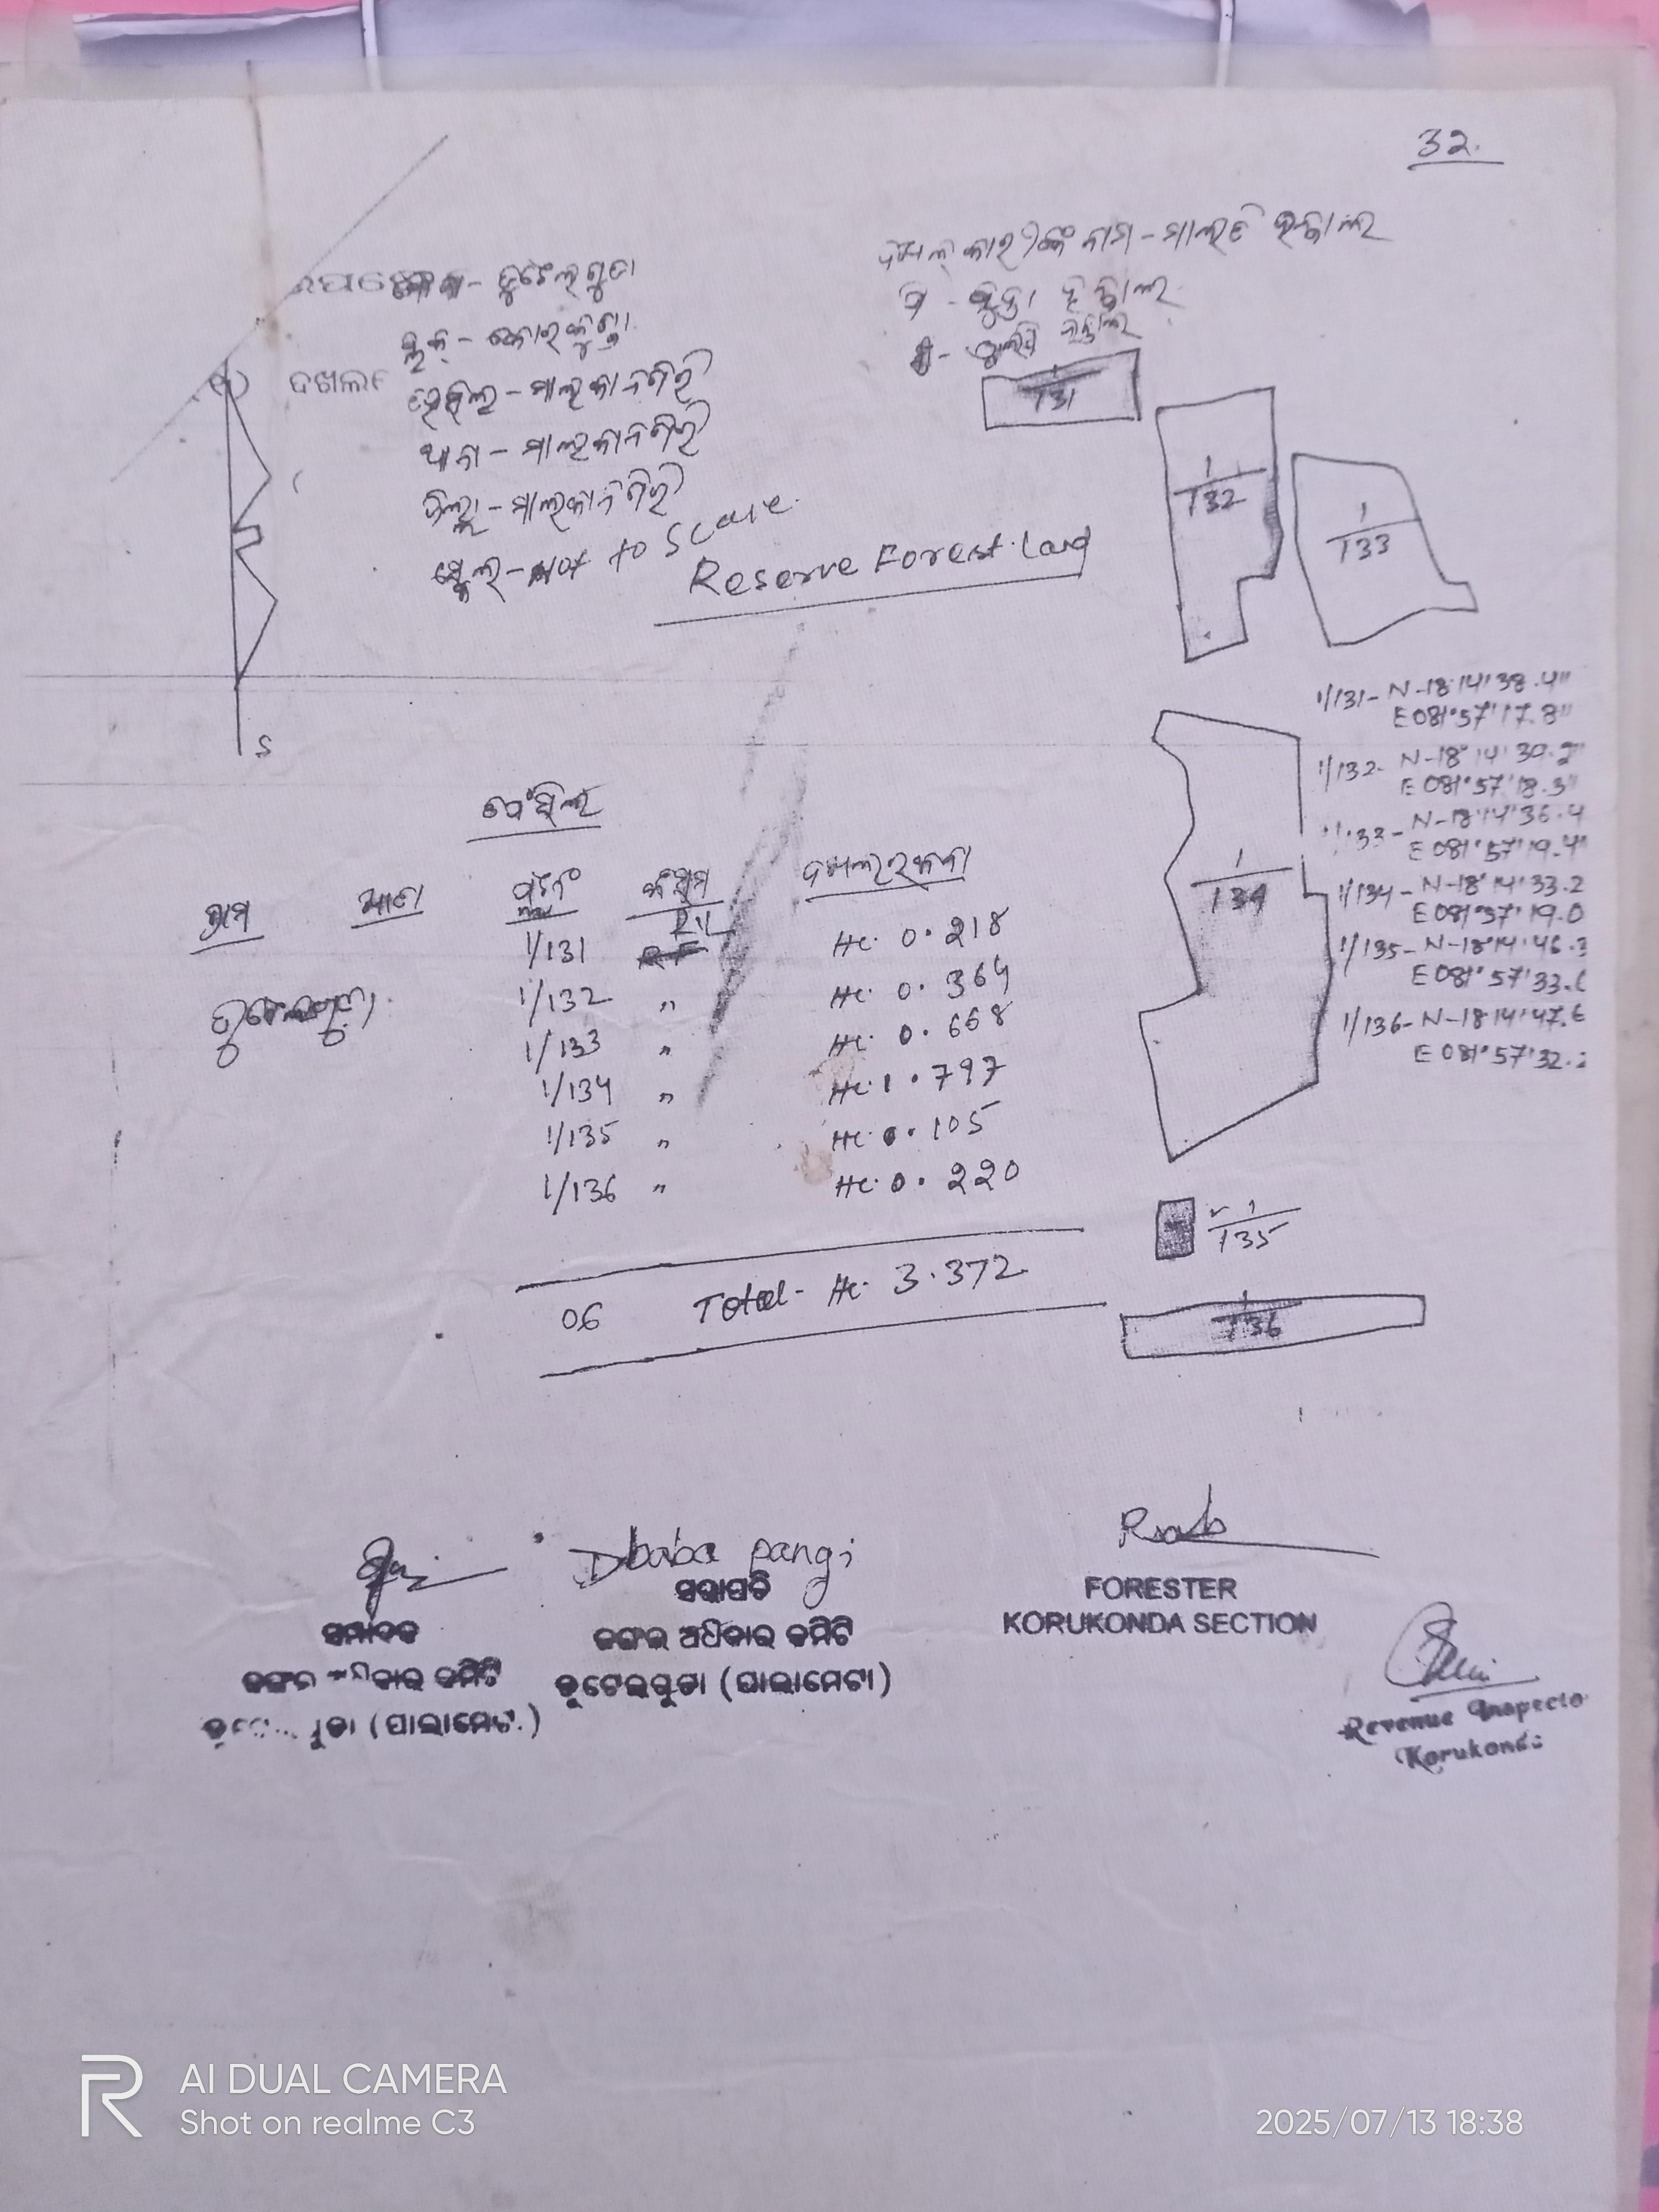 32.
ଦଖଲକାରୀଙ୍କ ନାମ - ମାଲତି ହନ୍ତାଲ
- ଡୁଟେଲଗୁଡା
ବ୍ଲକ୍ - କୋରକୁଣ୍ଡା
ତହସିଲ - ମାଲକାନଗିରି
ଥାନା - ମାଲକାନଗିରି
ଜିଲ୍ଲା - ମାଲକାନଗିରି
ସ୍କେଲ - Not to Scale
ଦଖଲ
Reserve Forest Land
1/131
1/132
1/133
1/131- N-18°14'38.4"
E 081°57'17.8"
1/132- N-18°14'39.2"
E 081°57'18.3"
1/133- N-18°14'36.4
E 081°57'19.4"
1/134- N-18°14'33.2
E 081°57'19.0
1/135- N-18°14'46.3
E 081°57'33.
1/136- N-18°14'47.6
E 081°57'32.
S
1/134
ଗ୍ରାମ ଖାତା ପ୍ଲଟନଂ କିସମ ଦଖଲରକବା
1/131 Hc. 0.218
ଡୁଟେଲଗୁଡା 1/132 " Hc. 0.364
1/133 " Hc. 0.668
1/134 " Hc. 1.797
1/135 " Hc. 0.105
1/136 " Hc. 0.220
06 Total - Hc. 3.372
1/135
1/136
Dbaba pangi
ସଭାପତି
ଜଙ୍ଗଲ ଅଧିକାର କମିଟି
ଡୁଟେଲଗୁଡା (ପାଲାମେଟା)
ସମ୍ପାଦକ
ଜଙ୍ଗଲ ଅଧିକାର କମିଟି
FORESTER
KORUKONDA SECTION
Revenue Inspecto
Korukond
AI DUAL CAMERA
Shot on realme C3
2025/07/13 18:38